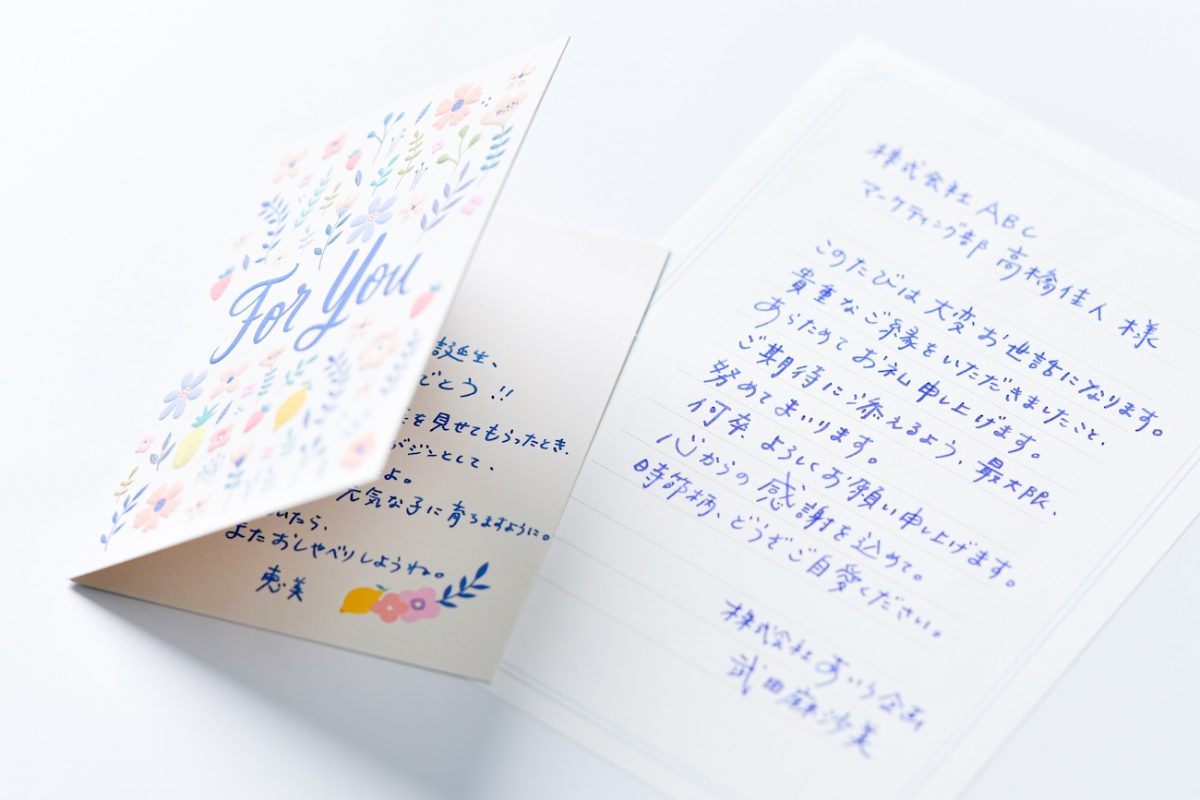 For You
誕生、
でとう!!
を見せてもらったとき、
バジンとして、
よ。
元気な子に育ちますように。
いたら、
またおしゃべりしようね。
恵美
株式会社ABC
マーケティング部 高橋佳人 様
このたびは大変お世話になります。
貴重なご縁をいただきましたこと、
あらためてお礼申し上げます。
ご期待に添えるよう、最大限、
努めてまいります。
何卒、よろしくお願い申し上げます。
心からの感謝を込めて。
時節柄、どうぞご自愛ください。
株式会社あいう企画
武田麻沙美